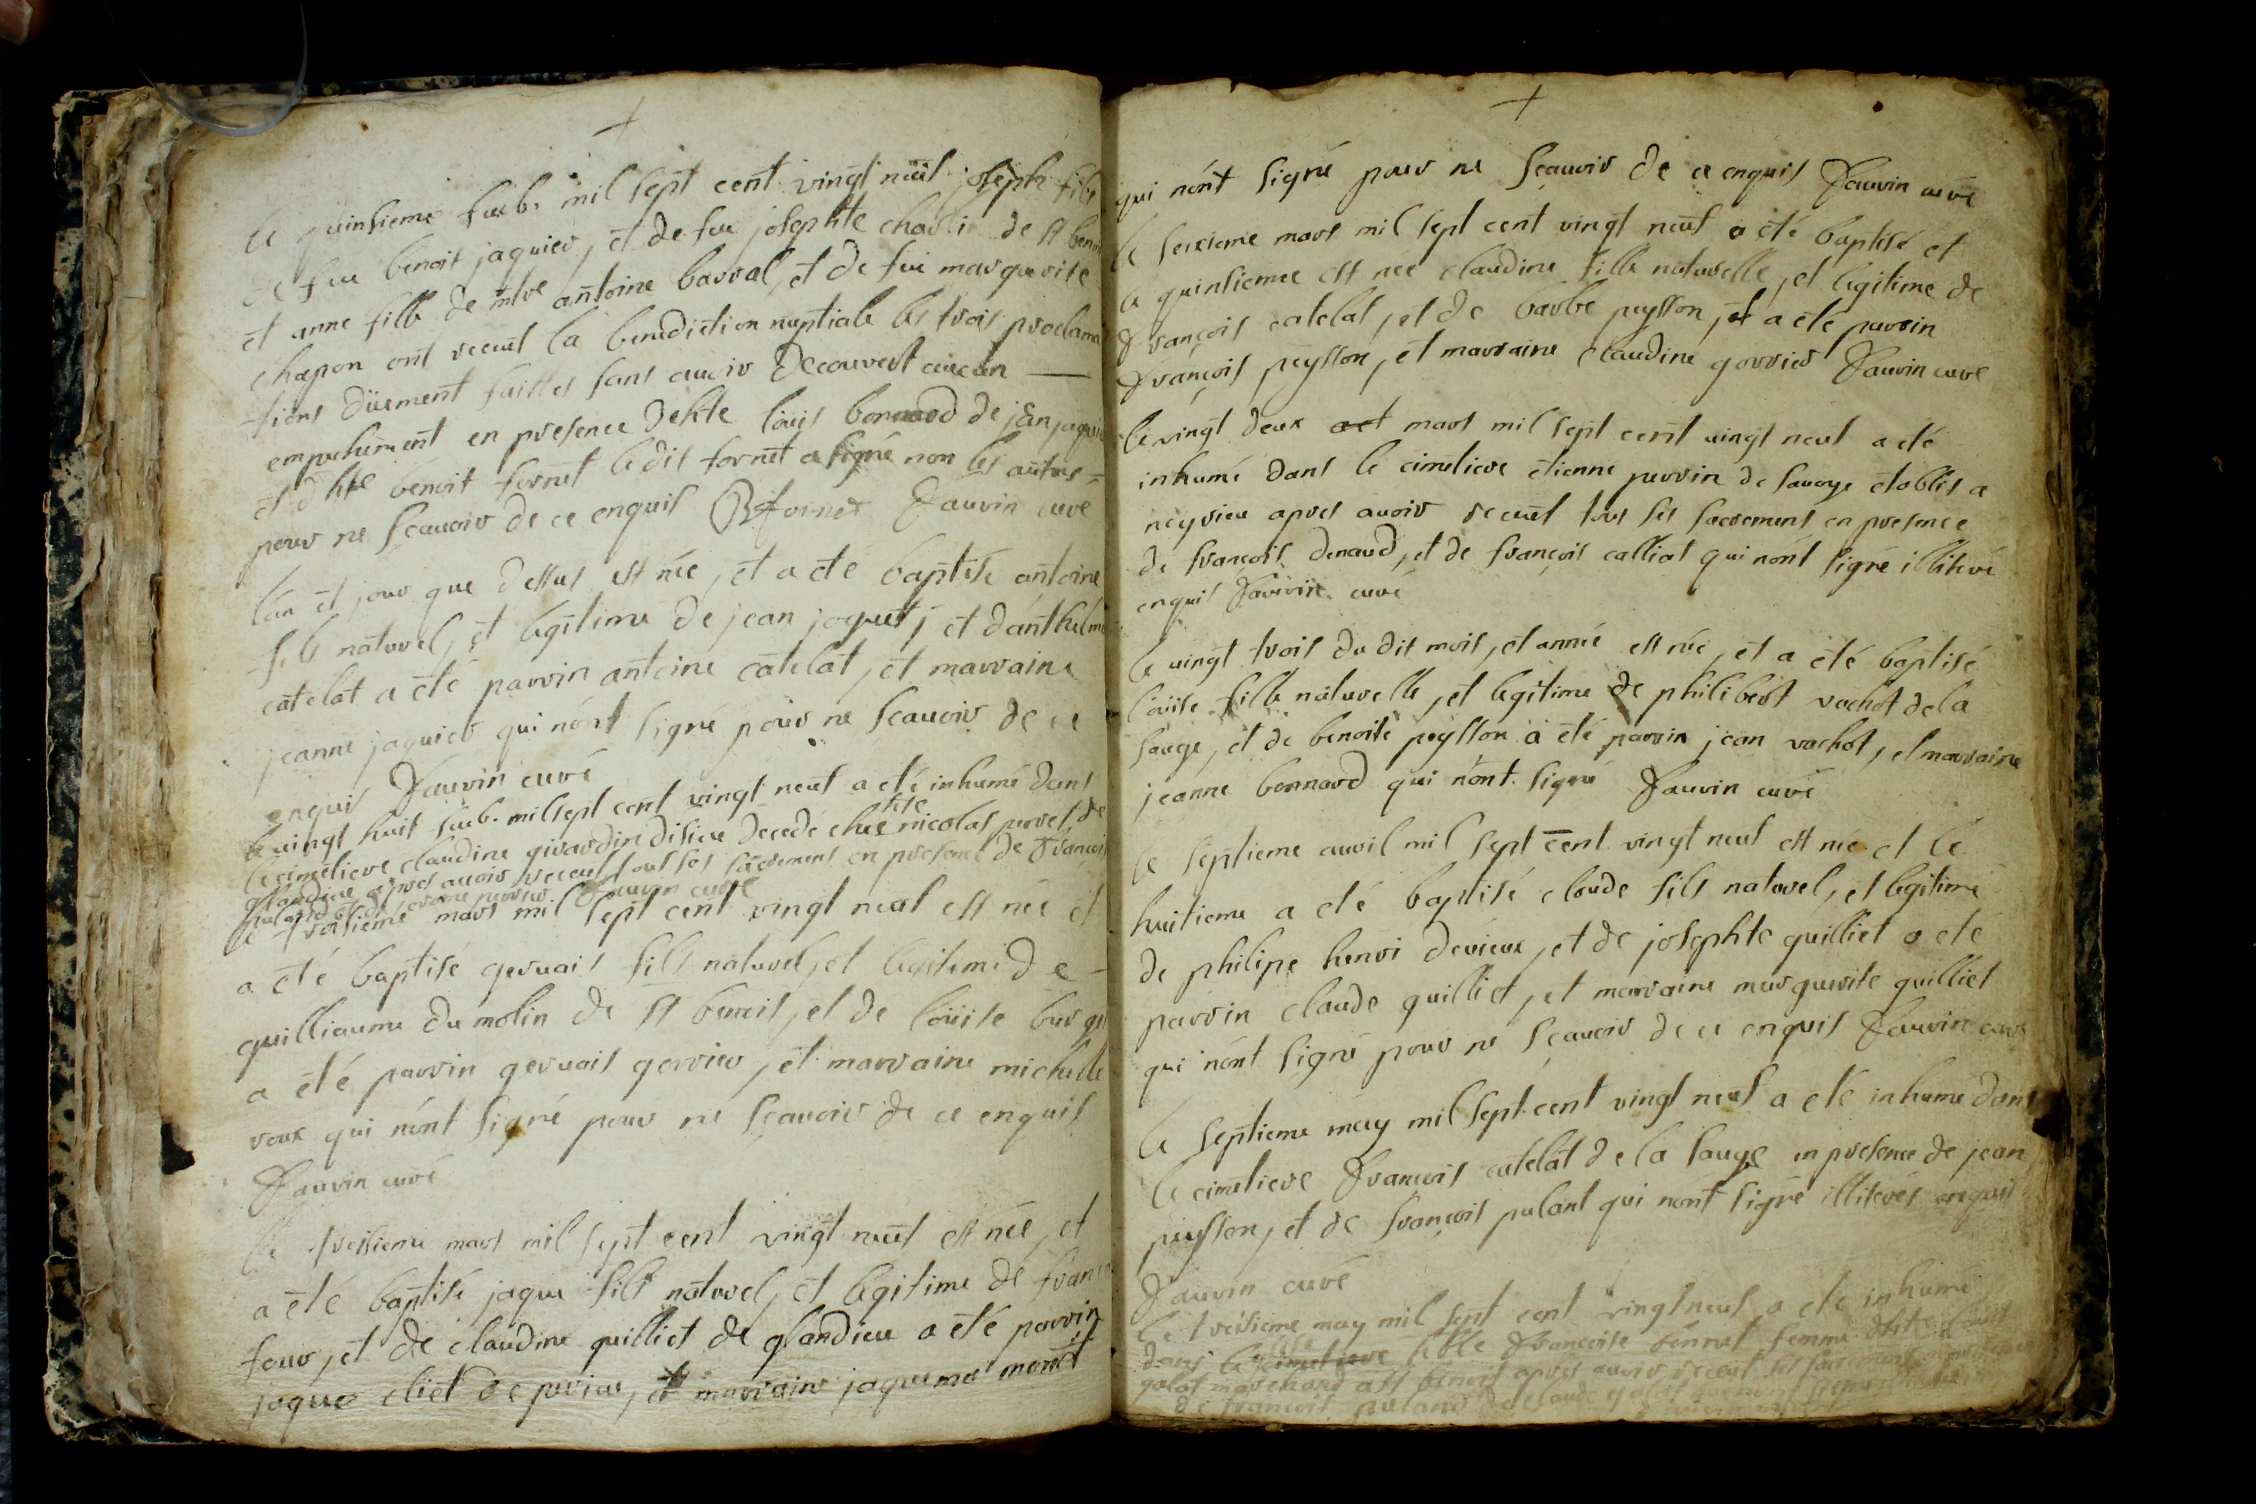 le quinsieme fueb. mil sept cent vingt neuf joseph fils
de feu benoit jaquier, et de feu josephte charlin de st benoit
et anne fille de mtre antoine barral, et de feu marguerite
chapon ont receut la benediction nuptiale les trois proclama
tions düement faittes sans avoir decouvert aucun
empechement en presence de hte loüis bonnard de jean jaquier
et d hte benoit fornet ledit fornet a signé non les autres
pour ne sçauoir de ce enquis B fornet fauvin curé
lan et jour que dessus est née, et a été baptisé antoine
fils naturel, et legitime de jean joquet, et danthelme
catelat a été parrin antoine catelat, et marraine
jeanne jaquier qui nónt signe pour ne scauoir de ce
enquis fauvin curé
le vingt huit fueb. mil sept cent vingt neuf a été inhumé dans
le cimetiere claudine girardin disieu decedé ches hte nicolas perret de
glandieu apres auoir receut tous ses sacrement en presence de francois
puland et de perrier fauvin curé
le troisieme mars mil sept cent vingt neuf est née et
a été baptisé gervais fils naturel, et legitime de
guilliaume du molin de st benoit, et de loüise burgit
a été parrin gervais gerrier, et marraine michelle
roux qui nónt signé pour ne sçauoir de ce enquis
fauvin curé
le tresieme mars mil sept cent vingt neuf est née, et
a été baptisé jaque fils naturel, et legitime de francois
four, et de claudine guilliet de glandieu a été parrin
jaque cliet de perieu, et marraine jaquema monet
qui nónt signé pour ne sçauoir de ce enquis fauvin curé
le seisieme mars mil sept cent vingt neuf a été baptisé et
le quinsieme est née claudine fille naturelle, et legitime de
françois catelat, et de barbe peysson, et a été parrin
françois peysson, et marraine claudine gorrier fauvin curé
le vingt deux mars mil sept cent vingt neuf a été
inhumé dans le cimetiere étienne perrin de savoye établis a
neyrieu apres auoir receut tous ses sacrements en presence
de françois denaud, et de françois calliat qui nónt signé illiteré
enquis fauvin curé
le vingt trois du dit mois, et année est née, et a été baptisé
loüise fille naturelle, et legitime de philibert vachot de la
sauge, et de benoite peysson a été parrin jean vachot, et marraine
jeanne bonnard qui nónt signé fauvin curé
le septieme auril mil sept cent vingt neuf est née et le
huitieme a été baptisé cloude fils naturel, et legitime
de philipe henri derieux, et de josephte guilliet a été
parrin claude guilliet, et marraine marguerite guilliet
qui nónt signé pour ne sçauoir de ce enquis fauvin curé
le septieme may mil sept cent vingt neuf a eté inhumé dans
le cimetiere françois catelat de la sauge en presence de jean
peysson, et de françois pulant qui nont signé illiterés enquis
fauvin curé
le treisieme may mil sept cent vingt neuf a été inhumé
dans le cimetiere françoise bennet femme d hte loüis
galat marchand a st benoit apres auoir receut ses sacrements en presence
de françois puland et de claude galat